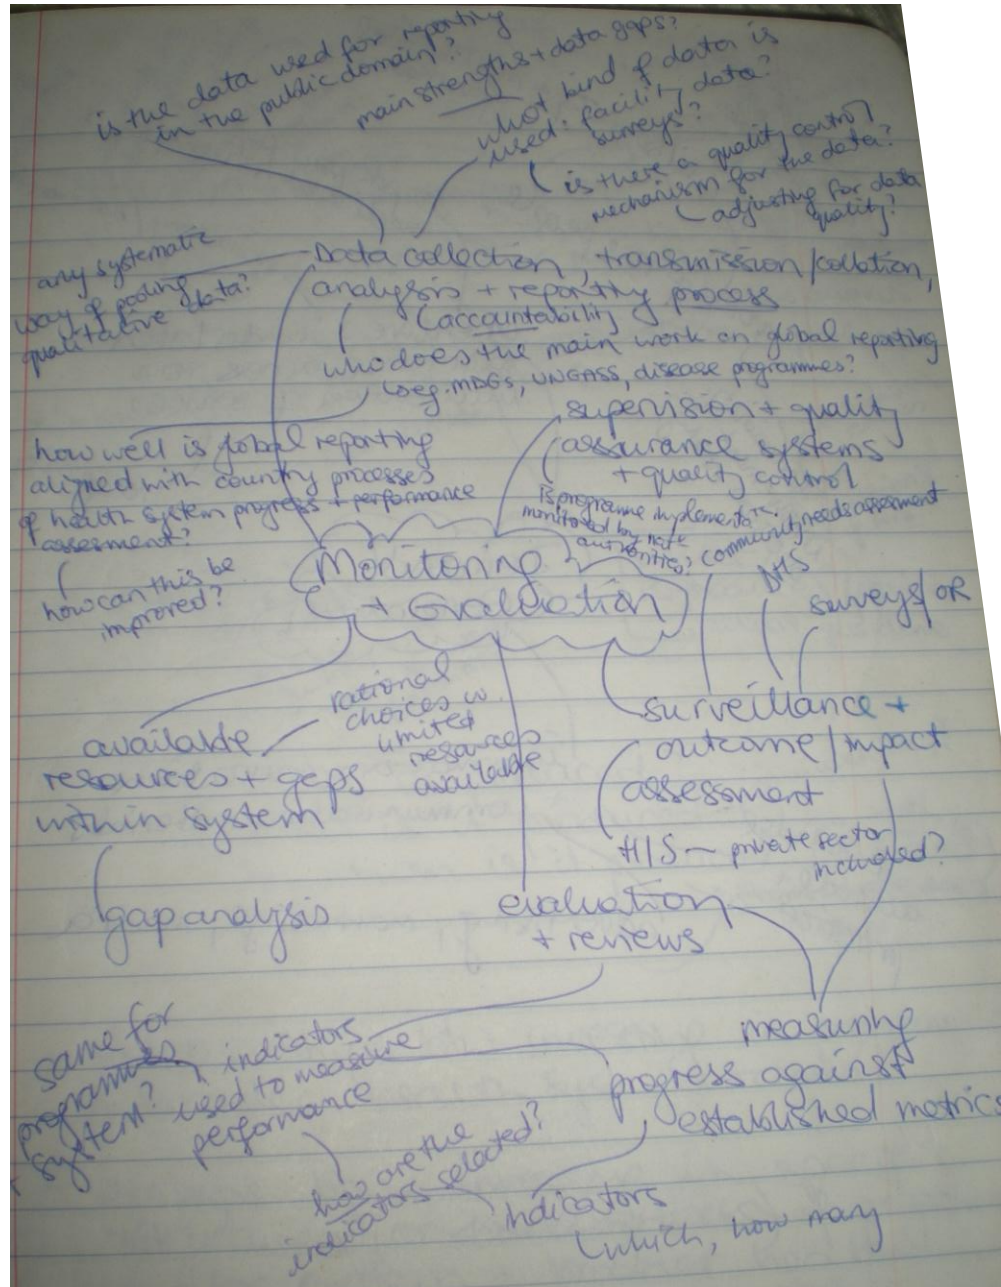 is the data used for reporting
in the public domain?
main strengths + data gaps?
what kind of data is
used: facility data?
surveys?
is there a quality control
mechanism for the data?
adjusting for data
quality?
any systematic
way of pooling
qualitative data?
Data collection, transmission/collation,
analysis + reporting process
accountability
who does the main work on global reporting
eg. MDGs, UNGASS, disease programmes?
how well is global reporting
aligned with country processes
of health system progress + performance
assesment?
how can this be
improved?
supervision + quality
assurance systems
+ quality control
is programme
monitored by
authorities?
community needs assesment
DHS
surveys/OR
Monitoring
+ Evaluation
available
resources + gaps
within system
rational
choices w.
limited
resources
available
gap analysis
surveillance +
outcome/impact
assessment
HIS – private sector
included?
evaluation
+ reviews
measuring
progress against
established metrics
same for
programmes
system?
indicators
used to measure
performance
how are the
indicators selected?
indicators
which, how many